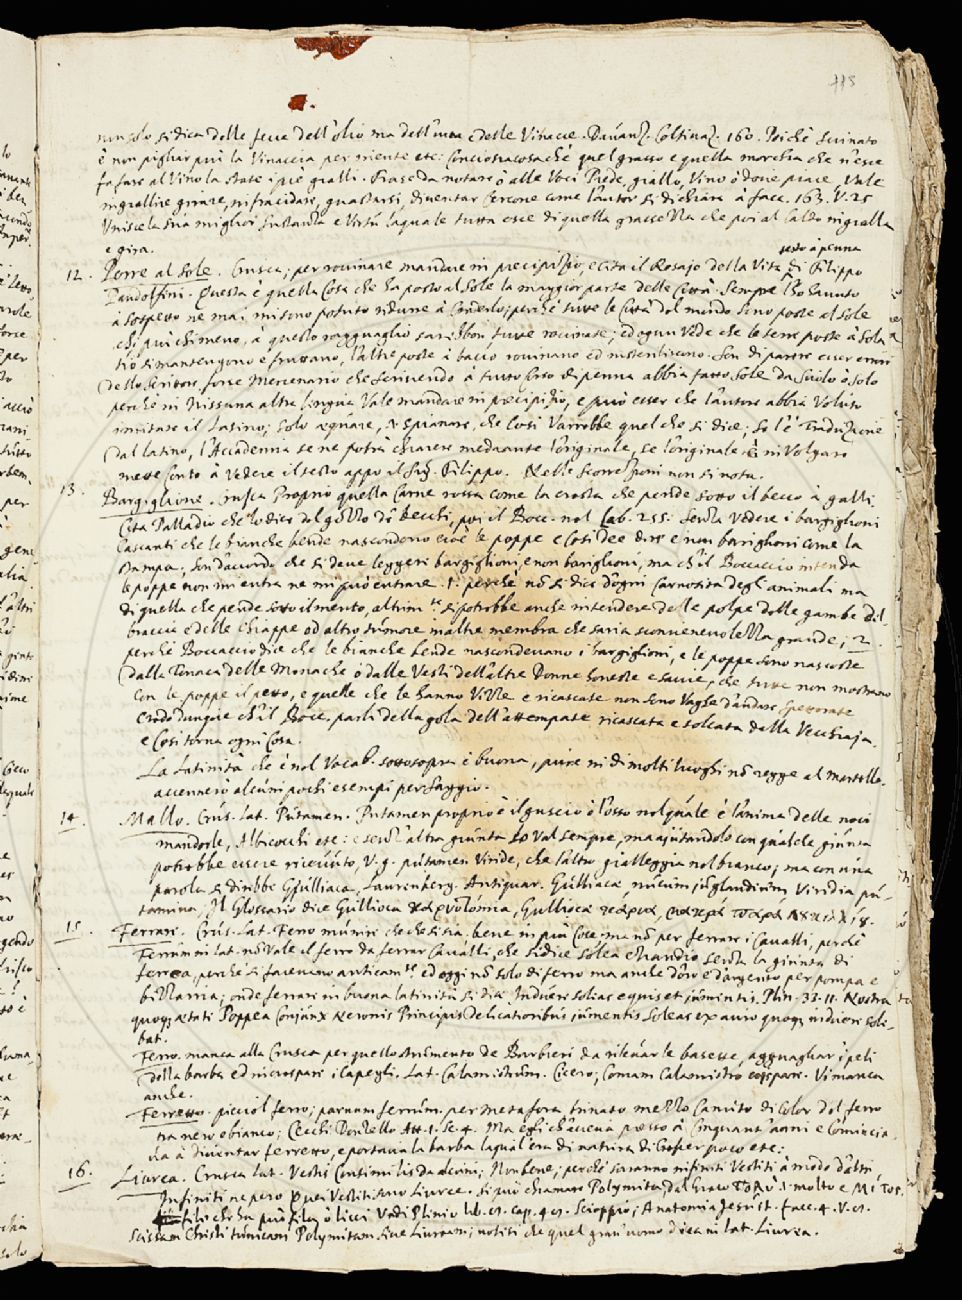 113
non solo si dica delle fecce dell'olio ma dell'uva e delle Vinacce. Davanz. Coltivaz. 160. Poichè Svinato
è non pigliar più la Vinaccia per niente etc: Conciosiacosachè quel grasso e quella morchia che n'esce
fa fare al Vino la state i piè gialli. Frase da notare ò alle Voci Piede, giallo, Vino ò dove piace. Vale
ingiallire girare, infracidare, guastarsi, diventar Cercone come l'autor si dichiara à facc. 163. V. 25
Unisce la sua miglior sustanza e Virtù laquale tutta esce di quella grassezza che poi al Caldo ingialla
e gira.
sesto à penna
12. Porre al Sole. Crusca; per rovinare mandare in precipizio, e cita il Rosajo della Vita di Filippo
Pandolfini. Questa è quella Cosa che ha posto al Sole la maggior parte delle Città. Sempre l'ho havuto
à Sospetto ne mai mi sono potuto ridurre à Crederlo; perchè tutte le Città del mondo sono poste al sole
chi più chi meno, à questo ragguaglio sarebbon tutte rovinate; ed ognun Vede che le terre poste à Sola
tio si mantengono e fruttano, l'altre poste à bacio rovinano ed insteriliscono. Son di parere esser errore
dello Scrittore, forse Mercenario che scrivendo à tutto corso di penna abbia fatto Sole da Suolo ò Solo
perchè in Nissuna altra lingua Vale mandare in precipizio, e può esser che l'autore abbia Voluto
imitare il Latino; Solo æquare, Spianare, che Così Varrebbe quel che si dice; Se l'è Traduzione
dal latino, l'Accademia se ne potrà chiarire mediante l'originale, se l'originale è in Volgare
mette Conto à Vedere il testo appo il Sig. Filippo. Nelle Scorrezioni non si nota.
13. Bargiglione. Crusca Proprio quella Carne rossa come la cresta che pende sotto il becco à galli.
Cita Palladio che lo dice del gozzo di becchi, poi il Bocc. nel Lab. 255. Senza Vedere i bargiglioni
Cascanti che le bianche bende nascondono cioè le poppe e Così dee dire e non bariglioni come la
stampa, son d'accordo che si deve leggere bargiglioni, e non bariglioni, ma ch'il Boccaccio intenda
le poppe non mi entra ne mi può entrare. 1. perchè nõ si dice d'ogni Carnosità degli animali ma
di quella che pende sotto il mento, altrim.te si potrebbe anche intendere delle polpe delle gambe del
braccio e delle Chiappe od altro tumore in altre membra che saria sconvenevolezza grande; 2.
perchè Boccaccio dice che le bianche bende nascondevano i bargiglioni, e le poppe sono nascoste
dalla Tonaca delle Monache ò dalle Vesti dell'altre Donne honeste e savie, che tutte non mostrano
Con le poppe il petto, e quelle che le hanno Vizze e ricascate non sono Vaghe d'andare spettorate
Credo dunque ch'il Bocc. parli della gola dell'attempate ricascata e solcata dalla Vecchiaja.
e Così torna ogni Cosa.
La Latinità che è nel Vocab. sottosopra è buona, pure in di molti luoghi nõ regge al martello.
accennerò alcuni pochi esempi per saggio.
14. Mallo. Crus. lat. Putamen. Putamen proprio è il guscio ò l'osso nel quale è l'anima delle noci
mandorle, Albicocchi etc: e senz'altra giunta lo Val sempre, ma ajutandolo con qualche giunta
potrebbe essere ricevuto, V. g. putamen Viride, che l'altro gialleggia nel bianco; ma con una
parola si direbbe Gulliaca, Laurenberg. Antiquar. Gulliacæ nucum juglandium Viridia pu-
tamina, Il Glossario dice Gullioca
15. Ferrare. Crus. Lat. Ferro munire che che si sia. bene in più Cose ma nõ per ferrare i Cavalli, perchè
Ferrum in lat. nõ Vale il ferro da ferrar Cavalli, che si dice Solea etiandio senza la giunta di
ferrea, perchè si facevano anticam.te ed oggi nõ solo di ferro ma anche d'oro e d'argento per pompa e
bizzarria; onde ferrare in buona latinità si dice Induere soleas equis et jumentis. Plin. 33. 11. Nostra
quoq ætate Poppea Conjunx Neronis Principis delicatioribus jumentis Soleas ex auro quoq induere sole-
bat.
Ferro. manca alla Crusca per quello strumento de Barbieri da rilevar le basette, agguagliar i peli
della barba ed increspare i Capegli. Lat. Calamistrum. Cicero; Comam Calamistro crispare. Vi manca
anche.
Ferretto. picciol ferro; parvum ferrum. per metafora trinato mezzo Canuto di Color del ferro
tra nero e bianco; Cecchi Donzello Att. 1. Sc. 4. Ma egli ch'aveva presso à Cinquant'anni e Comincia-
va à diventar ferretto, e portava la barba laqual'era di natura di Cosper poco etc:
16. Livrea. Crusca lat. Vestis Consimilis da alcuni; Non bene, perchè saranno infiniti Vestiti à modo d'altri
Infiniti ne pero quei Vestiti sono Livree. si può chiamare Polymita dal Greco molto e Μίτος
filo ch'hà più fila ò licci Vedi Plinio lib. cap. Scioppio; Anatomia Jesuit. facc. 4. V.
Scissam Christi tunicam Polymitam sive Livream; notisi che quel gran uomo dice in lat. Livrea.